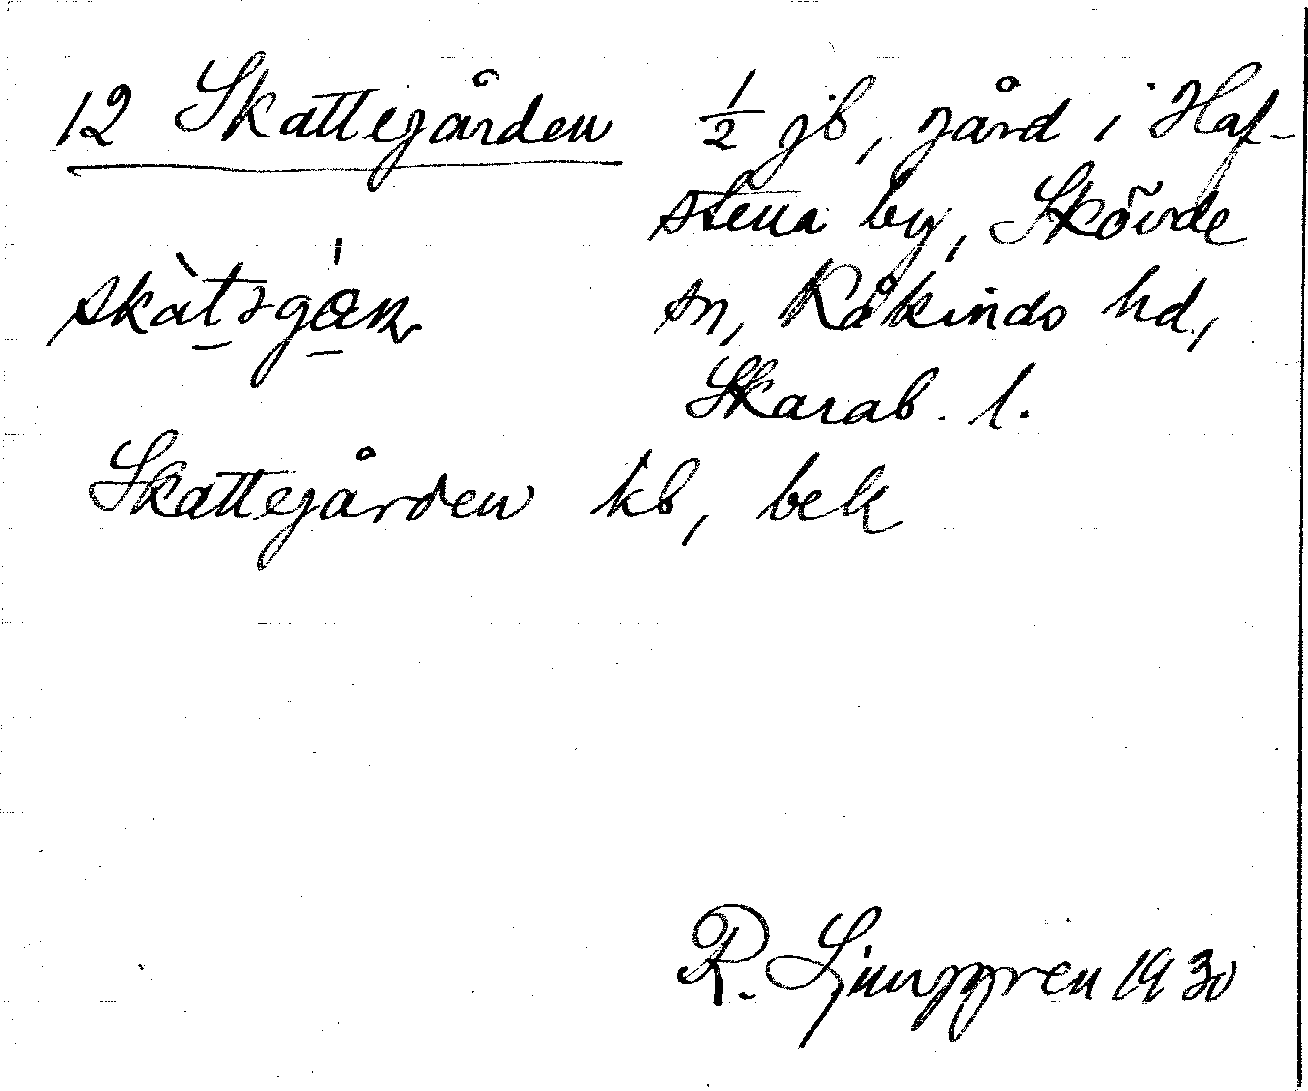 12 Skattegården ½ jb, gård i Haf-
stena by, Skövde
sn, Kåkinds hd,
Skarab. l.
Skattegården kb, bek
R. Ljunggren 1930